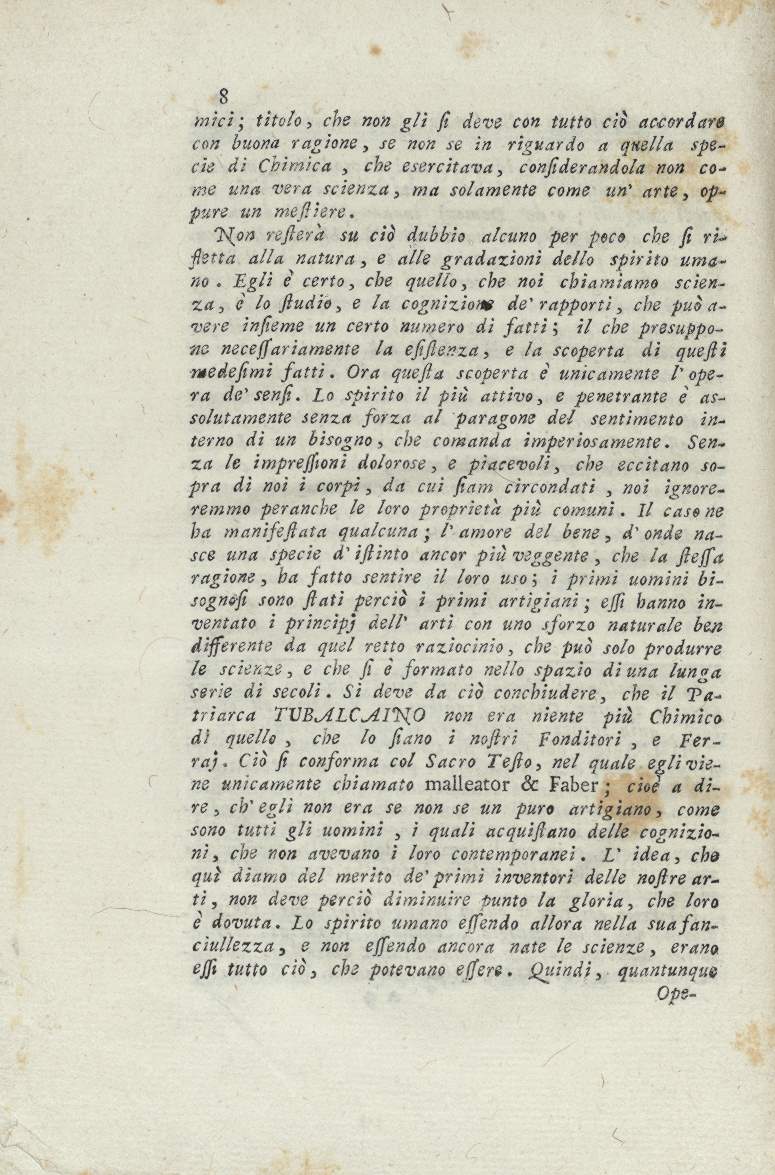 8
mici; titolo, che non gli ſi deve con tutto ciò accordare
con buona ragione, se non se in riguardo a quella spe-
cie di Chimica, che esercitava, conſiderandola non co-
me una vera scienza, ma solamente come un' arte, op-
pure un meſtiere.
Non reſterà su ciò dubbio alcuno per poco che ſi ri-
fletta alla natura, e alle gradazioni dello spirito uma-
no. Egli è certo, che quello, che noi chiamiamo scien-
za, è lo ſtudio, e la cognizione de' rapporti, che può a-
vere inſieme un certo numero di fatti; il che presuppo-
ne neceſſariamente la eſiſtenza, e la scoperta di queſti
medeſimi fatti. Ora queſta scoperta è unicamente l' ope-
ra de' senſi. Lo spirito il più attivo, e penetrante è as-
solutamente senza forza al paragone del sentimento in-
terno di un bisogno, che comanda imperiosamente. Sen-
za le impreſſioni dolorose, e piacevoli, che eccitano so-
pra di noi i corpi, da cui ſiam circondati, noi ignore-
remmo peranche le loro proprietà più comuni. Il caso ne
ha manifeſtata qualcuna; l' amore del bene, d' onde na-
sce una specie d' iſtinto ancor più veggente, che la ſteſſa
ragione, ha fatto sentire il loro uso; i primi uomini bi-
sognoſi sono ſtati perciò i primi artigiani; eſſi hanno in-
ventato i principj dell' arti con uno sforzo naturale ben
differente da quel retto raziocinio, che può solo produrre
le scienze, e che ſi è formato nello spazio di una lunga
serie di secoli. Si deve da ciò conchiudere, che il Pa-
triarca TUBALCAINO non era niente più Chimico
di quello, che lo ſiano i noſtri Fonditori, e Fer-
raj. Ciò ſi conforma col Sacro Teſto, nel quale egli vie-
ne unicamente chiamato malleator & Faber; cioè a di-
re, ch' egli non era se non se un puro artigiano, come
sono tutti gli uomini, i quali acquiſtano delle cognizio-
ni, che non avevano i loro contemporanei. L' idea, che
quì diamo del merito de' primi inventori delle noſtre ar-
ti, non deve perciò diminuire punto la gloria, che loro
è dovuta. Lo spirito umano eſſendo allora nella sua fan-
ciullezza, e non eſſendo ancora nate le scienze, erano
eſſi tutto ciò, che potevano eſſere. Quindi, quantunque
Ope-